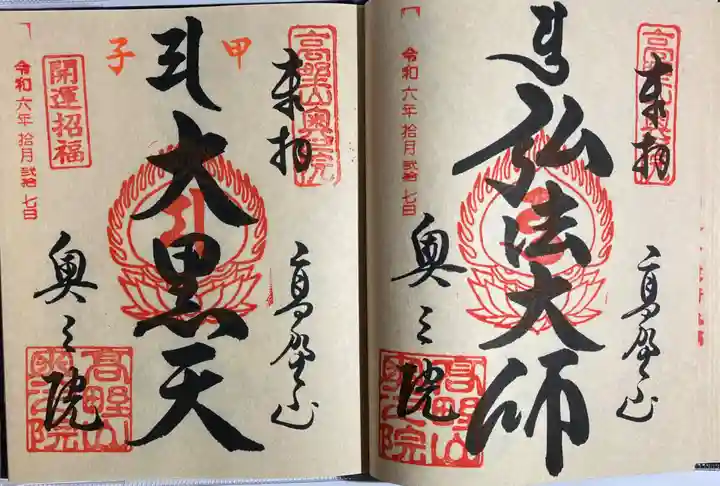 高野山奥之院
奉拜
高野山
甲子
大黒天
開運招福
令和六年拾月弐拾七日
奥之院
高野山奥之院
奉拜
高野山
弘法大師
令和六年拾月弐拾七日
奥之院